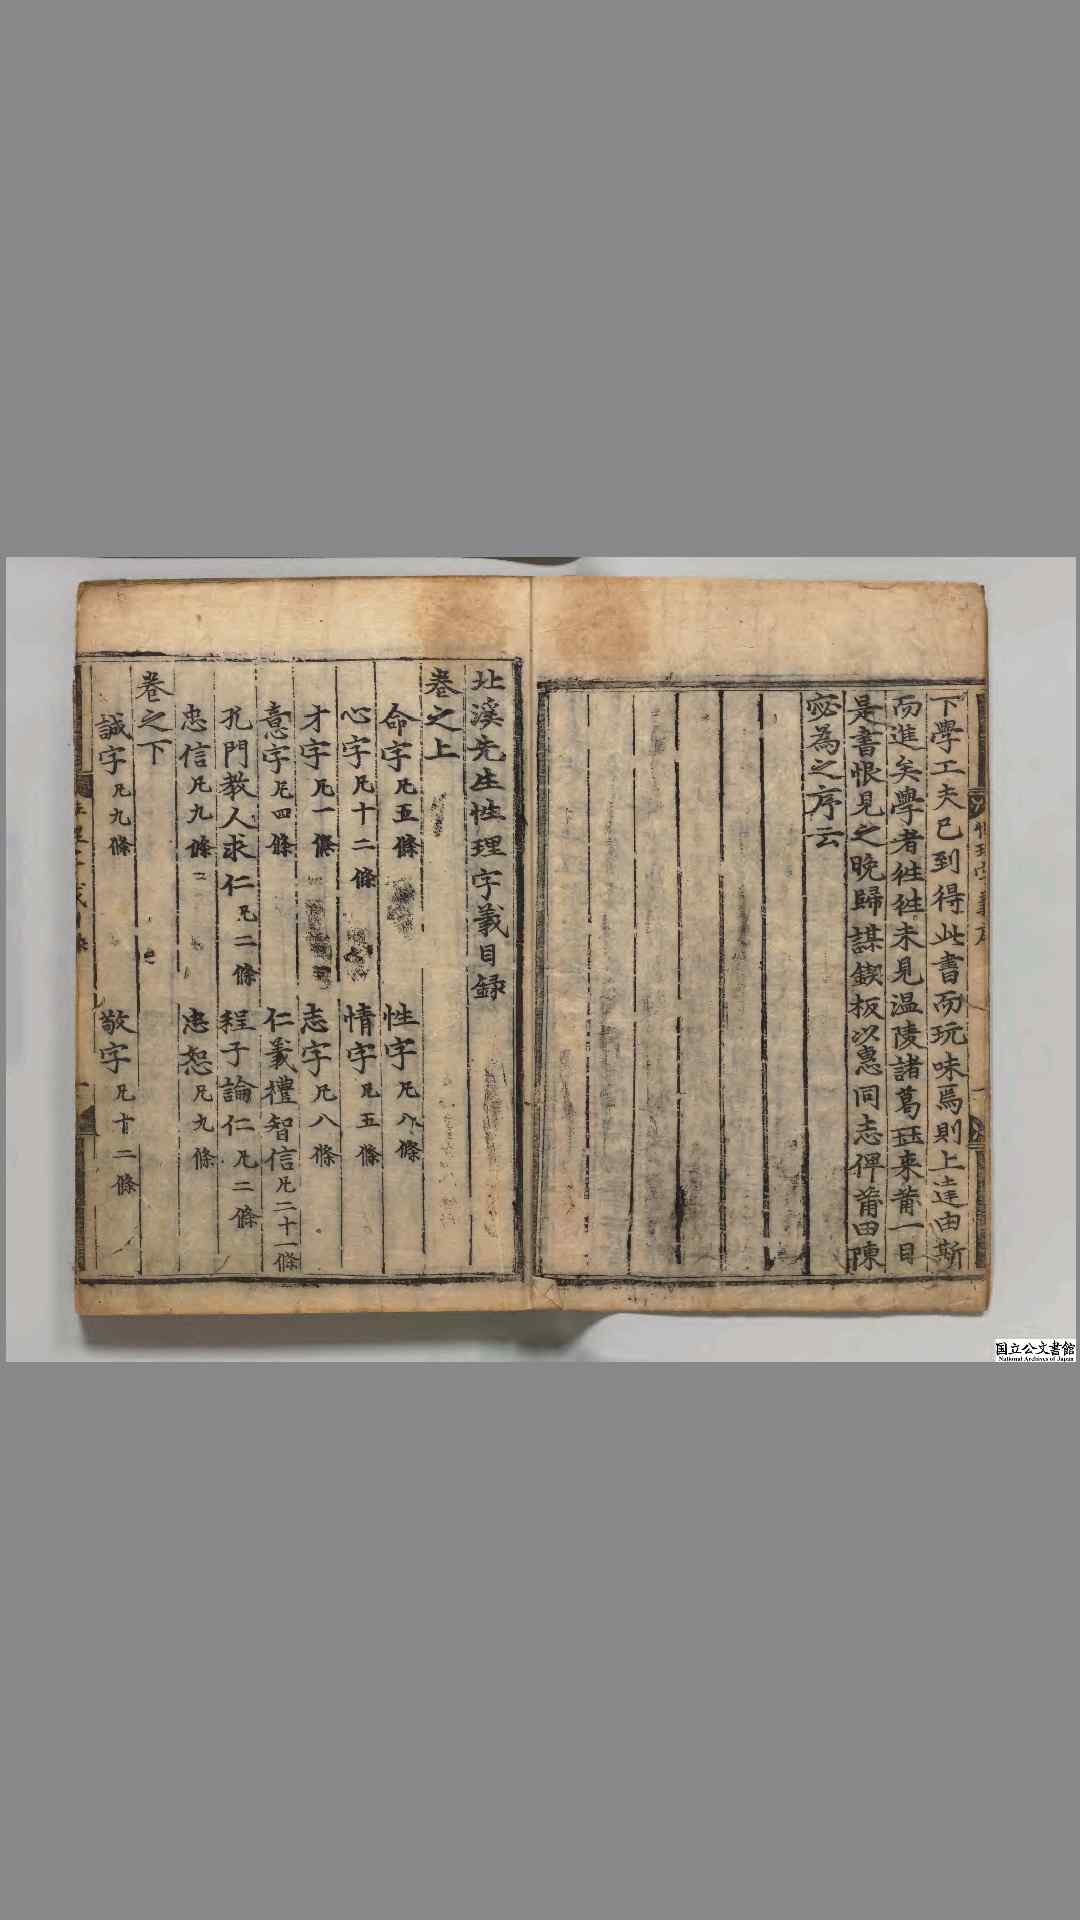 下學工夫已到得此書而玩味焉則上達由斯
而進矣學者徃徃未見温陵諸葛珏来莆一目
是書恨見之晩歸謀鋟板以惠同志俾莆田陳
宓為之序云
北溪先生性理字義目録
卷之上
命字凡五條 性字凡八條
心字凡十二條 情字凡五條
才字凡一條 志字凡八條
意字凡四條 仁義禮智信凡二十一條
孔門教人求仁凡二條 程子論仁凡二條
忠信凡九條 忠恕凡九條
卷之下
誠字凡九條 敬字凡十二條
国立公文書館
National Archives of Japan